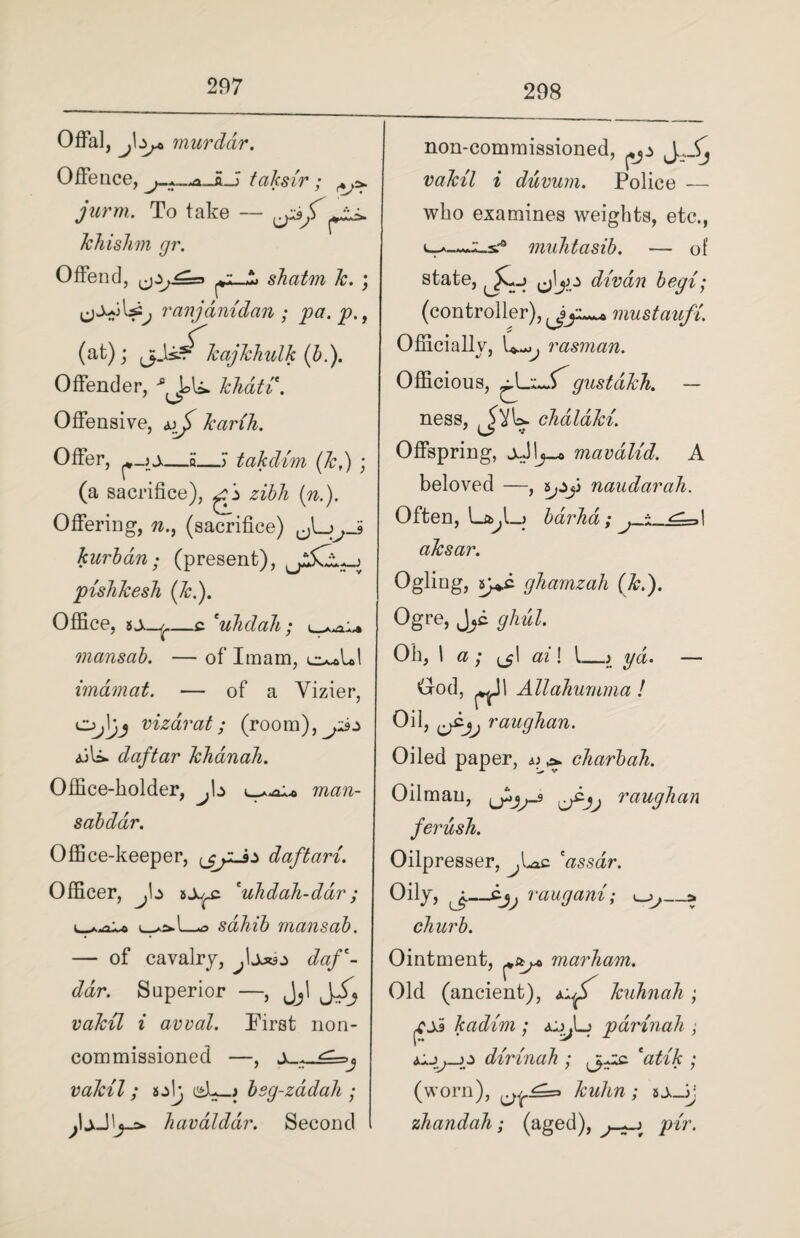 297
298
Offal, مردار murdár.
Offence, تقصير taksír ; جرم
jurm. To take — خشم گرفتن
khishm gr.
Offend, شتم کردن shatm k. ;
رنجانیدن ranjánídan ; pa. p.,
(at) ; کجخلق kajkhulk (b.).
Offender, خاطئ khátí‘.
Offensive, کریه karíh.
Offer, تقدیم takdím (k.) ;
(a sacrifice), ذبح zibh (n.).
Offering, n., (sacrifice) قربان
kurbán ; (present), پیشکش
píshkesh (k.).
Office, عهده ‘uhdah ; منصب
mansab. — of Imam, امامت
imámat. — of a Vizier,
وزارت vizárat ; (room), دفتر
خانه daftar khánah.
Office-holder, منصب دار man-
sabdár.
Office-keeper, دفتری daftarí.
Officer, عهده دار ‘uhdah-dár ;
صاحب منصب sáhib mansab.
— of cavalry, دفعدار daf‘-
dár. Superior —, وکیل اول
vakíl i avval. First non-
commissioned —, وکیل
vakíl ; بیگ زاده beg-zádah ;
حوالدار haváldár. Second
non-commissioned, وکیل دوم
vakíl i dúvum. Police —
who examines weights, etc.,
محتسب muhtasib. — of
state, دیوان بیگی díván begí ;
(controller), مستوفی mustaufí.
Officially, رسما rasman.
Officious, گستاخ gustákh. —
ness, چالاکی cháláki.
Offspring, موالید maválíd. A
beloved —, نودره naudarah.
Often, بارها bárhá ; اکثر
aksar.
Ogling, غمزه ghamzah (k.).
Ogre, غول ghúl.
Oh, ا a ; ای ai ! یا yá. —
God, اللهم Allahumma !
Oil, روغن raughan.
Oiled paper, چربه charbah.
Oilman, روغن فروش raughan
ferúsh.
Oilpresser, عصار ‘assár.
Oily, روغنی raugani ; چرب
churb.
Ointment, مرهم marham.
Old (ancient), کهنه kuhnah ;
قدیم kadím ; پارینه párínah ;
دیرینه dírínah ; عتیق ‘atík ;
(worn), کهن kuhn ; ژنده
zhandah ; (aged), پیر pír.